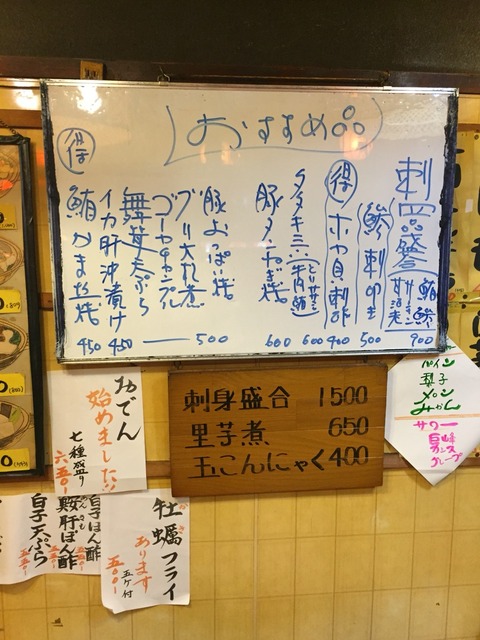 おすすめ品
刺四品盛合
900
鯵刺叩き
500
得
ホヤ貝刺酢
400
タタキ三
600
豚タンねぎ焼
600
豚おっぱい焼
500
ブリ大根煮
ゴーヤチャンプル
舞茸天ぷら
イカ肝沖漬け
450
鮪かま塩焼
450
得
刺身盛合 1500
里芋煮 650
玉こんにゃく 400
おでん
始めました!!
七種盛り
六五〇
牡蠣フライ
あります
五ケ付
五〇〇
白子ぽん酢
鮟肝ぽん酢
白子天ぷら
パイン
梨子
メロン
みかん
サワー
巨峰
カシス
グレープ